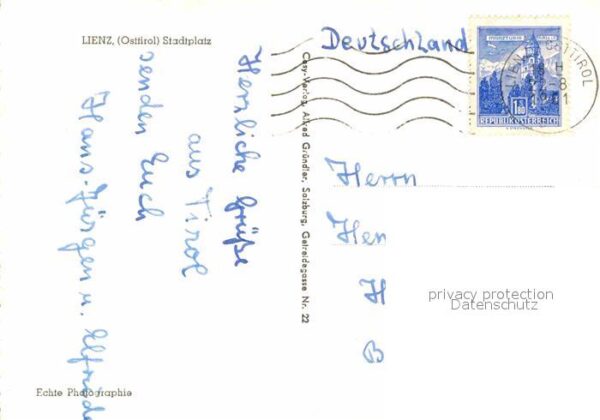 LIENZ, (Osttirol) Stadtplatz
Herzliche Grüße
aus Tirol
senden Euch
Hans-Jürgen u. Elfriede
Echte Photographie
Cosy-Verlag Alfred Gründler, Salzburg, Getreidegasse Nr. 22
Deutschland
1.80
REPUBLIK ÖSTERREICH
LIENZ OSTTIROL
Herrn
H
B
privacy protection
Datenschutz